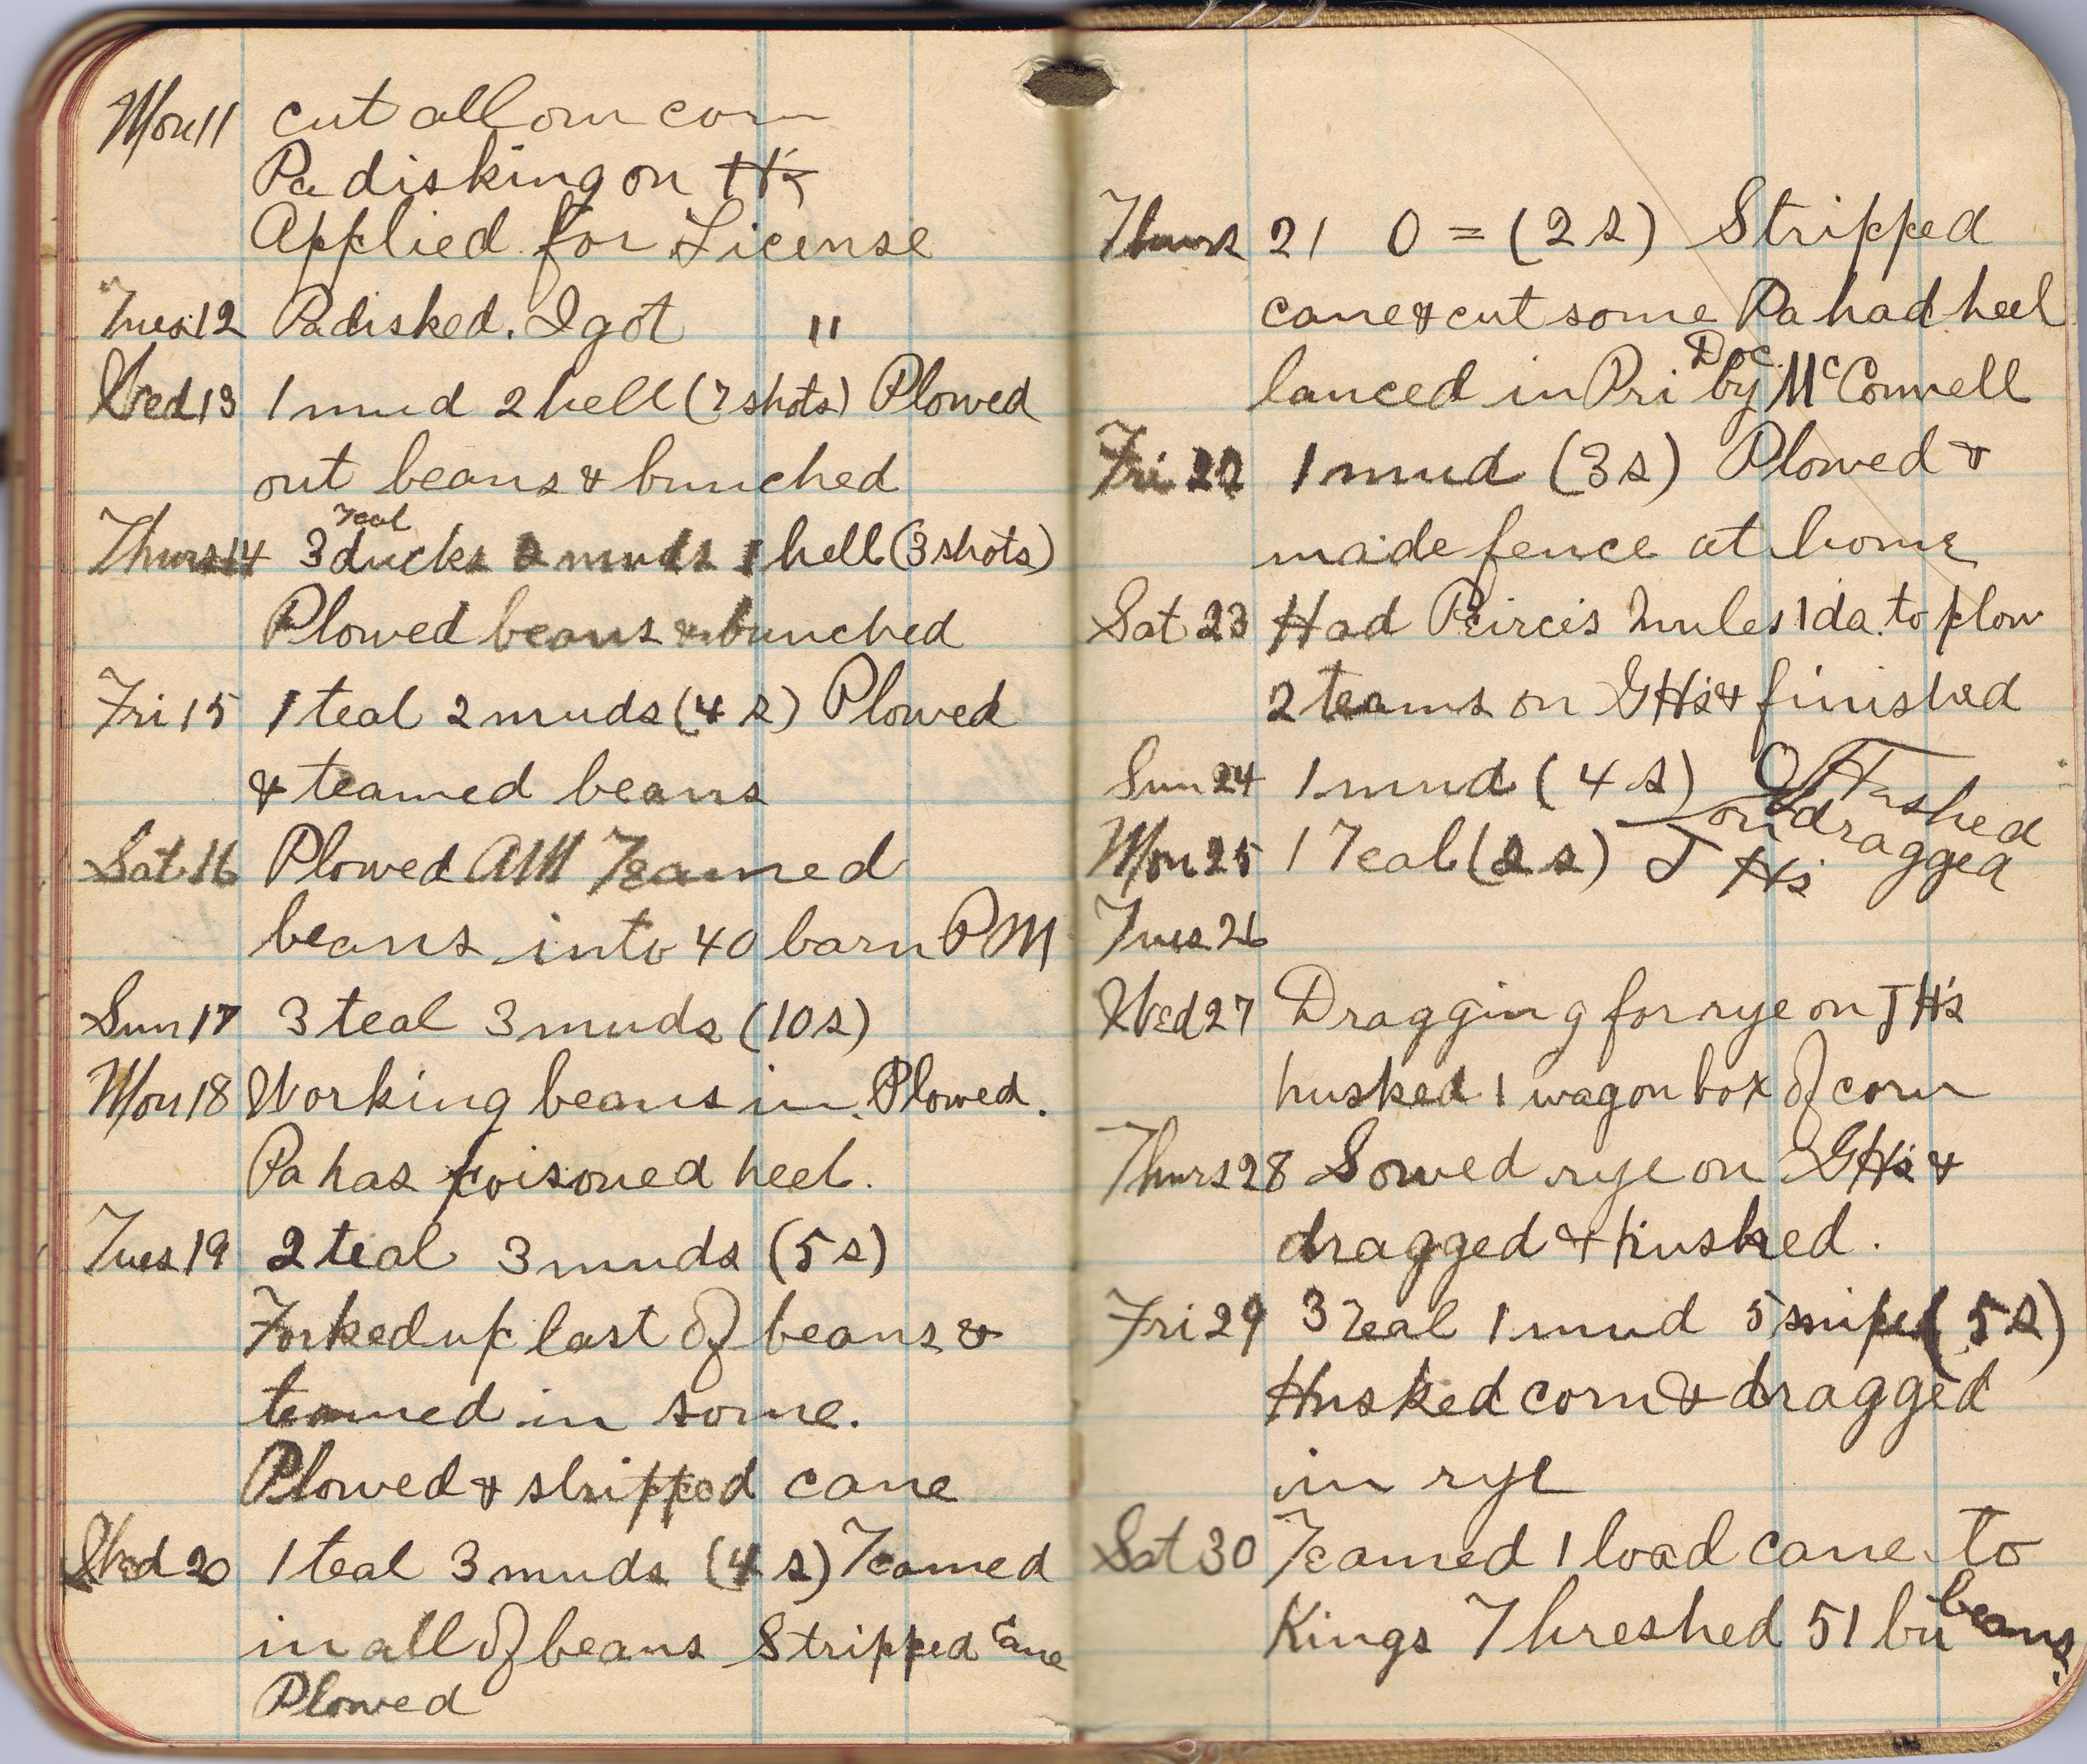 Mon 11 cut all our corn
Pa disking on H's
Applied for License
Tues 12 Pa disked. I got "
Wed 13 1 mud 2 hell (7 shots) Plowed
out beans & bunched
Teal
Thurs 14 3 ducks 2 muds 1 hell (3 shots)
Plowed beans & bunched
Fri 15 1 teal 2 muds (4 s) Plowed
& teamed beans
Sat 16 Plowed AM Teamed
beans into 40 barn PM
Sun 17 3 teal 3 muds (10 s)
Mon 18 Working beans in. Plowed.
Pa has poisoned heel.
Tues 19 2 teal 3 muds (5 s)
Forked up last of beans &
teamed in some.
Plowed & stripped cane
Wed 20 1 teal 3 muds (4 s) Teamed
in all of beans Stripped Cane
Plowed
Thurs 21 0 = (2 s) Stripped
cane & cut some Pa had heel
Doc.
lanced in Pri by McConnell
Fri 22 1 mud (3 s) Plowed &
made fence at home
Sat 23 Had Peirce's mules 1 da. to plow
2 teams on GH's & finished
Sun 24 1 mud (4 s)
Mon 25 1 Teal (2 s) Husked
on dragged
J H's
Tues 26
Wed 27 Dragging for rye on J H's
husked 1 wagon box of corn
Thurs 28 Sowed rye on GH's &
dragged & husked.
Fri 29 3 Teal 1 mud 5 snipes (5 s)
Husked corn & dragged
in rye
Sat 30 Teamed 1 load cane to
Kings Threshed 51 bu beans.